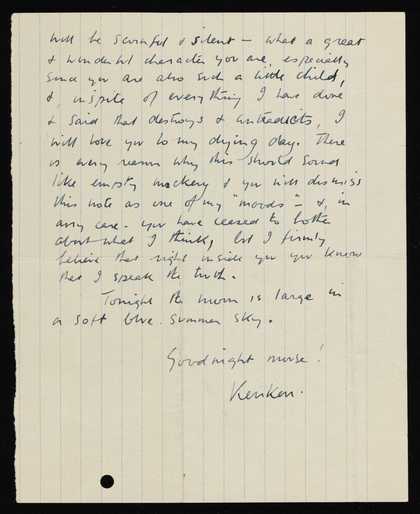 will be scornful & silent — what a great
& wonderful character you are, especially
since you are also such a little child,
&, inspite of everything I have done
& said that destroys & contradicts, I
will love you to my dying day. There
is every reason why this should sound
like empty mockery & you will dismiss
this note as one of my "moods" — &, in
any case, you have ceased to bother
about what I think, but I firmly
believe that right inside you you know
that I speak the truth.
Tonight the moon is large in
a soft blue summer sky.
Goodnight nurse!
Kenken.